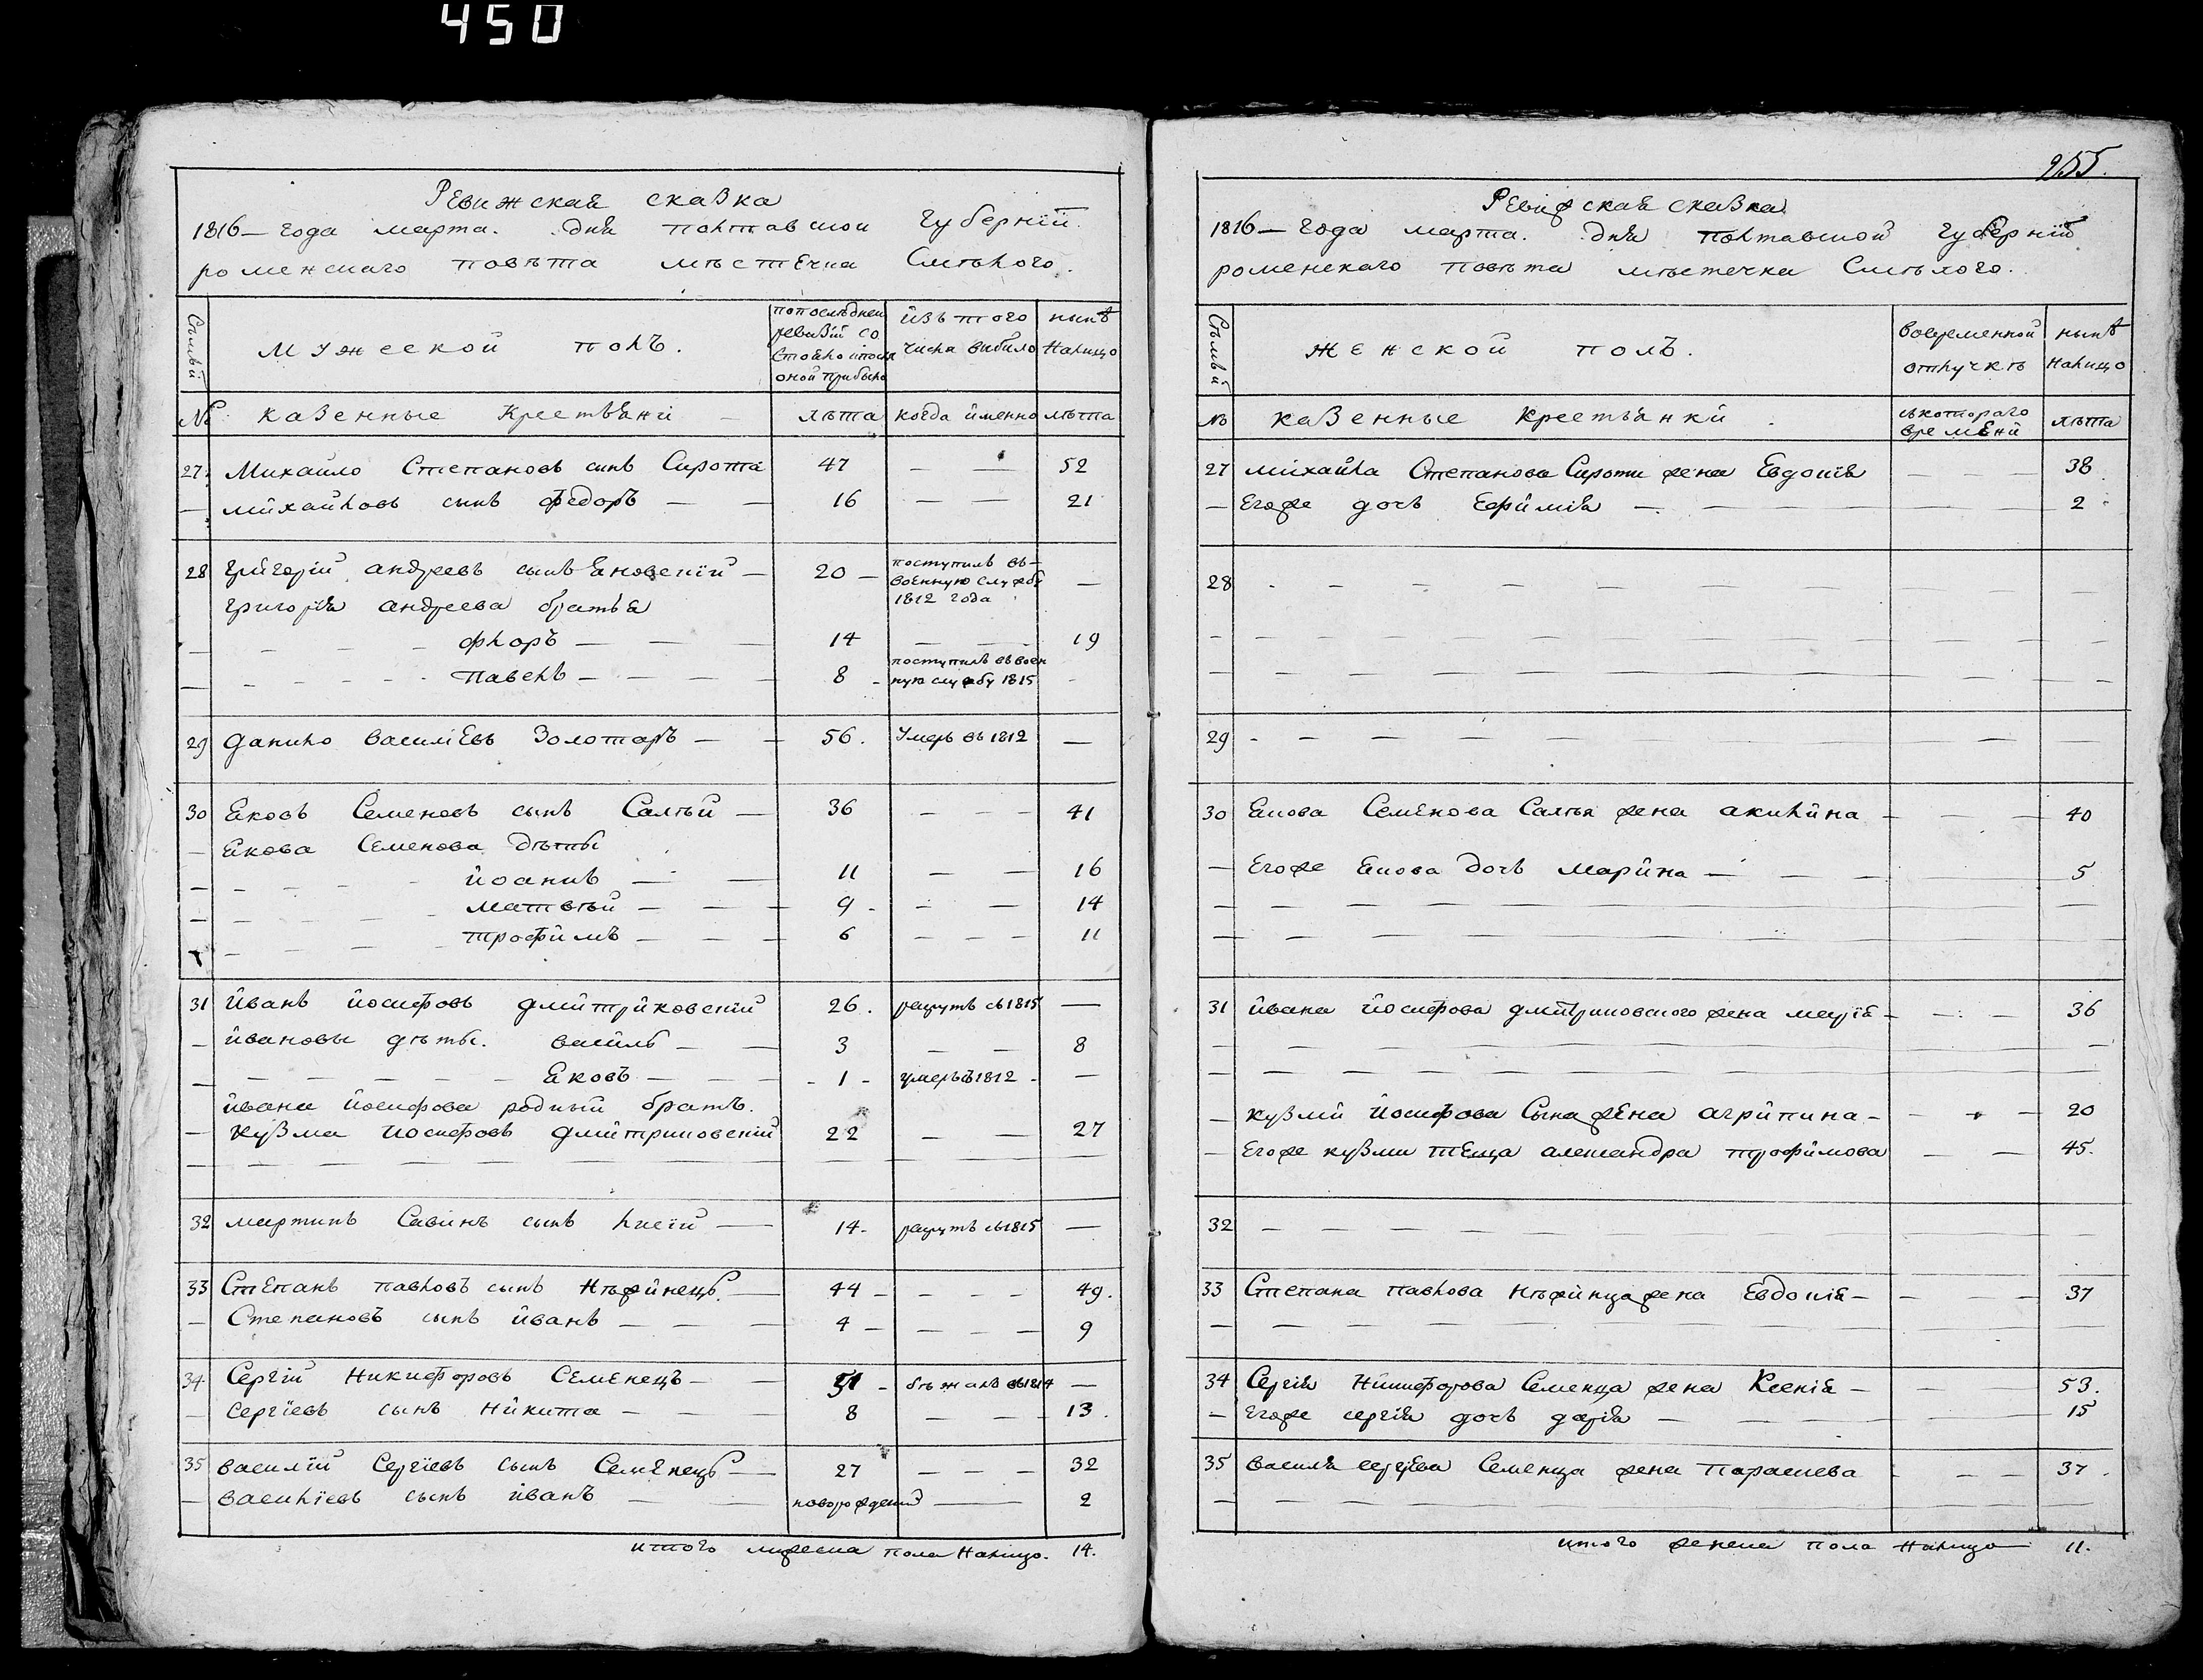 450
Ревижская сказка
1816 — года марта. дня полтавской Губернїи.
роменскаго повѣта мѣстечка Смѣлого.
Сѣмьи
Мужеской полъ.
попослѣдней ревизїи состояло и после оной прибыло
изъ того числа выбило
нынѣ налицо
№ казенные Крестьяни — лѣта когда именно лѣта
27. Михайло Степановъ сынъ Сирота 47 — — 52
— михайловъ сынъ федоръ — — 16 — — 21
28 Григорїй андреевъ сынъ Яновскїй — 20 — поступилъ въ военную службу 1812 года —
Григорїя андреева братья
— флоръ — — — 14 — — — 19
— павелъ — — — 8 — поступилъ въ военную службу 1815 -
29 данило василїевъ Золотаръ — — 56. Умеръ въ 1812 —
30 Яковъ Семеновъ сынъ Салѣй — 36 — — — 41
— Якова Семенова дѣты
— иоаннъ — — 11 — — 16
— матвѣй — — — 9 - — — 14
— трофимъ — — — 6 — — — 11
31 иванъ иосифовъ дмитриковскїй 26. рекрутъ съ 1815 —
— ивановы дѣты. василь — — 3 — — 8
— Яковъ — — — - 1 - умеръ въ 1812 - —
ивана иосифова родный братъ.
— Кузма иосифовъ дмитриковскїй 22 — — 27
32 мартинъ Савинъ сынъ лисїй — 14- рекрутъ съ 1815 —
33 Степанъ павловъ сынъ Нѣжинецъ. — 44 — — — — 49.
— Степановъ сынъ иванъ — — — 4 — — — — 9
34 Сергїй Никифоровъ Семенецъ — — 51 — бѣжалъ въ 1814 —
— Сергїевъ сынъ Никита — — — 8 — — — 13.
35 василїй Сергїевъ сынъ Семенецъ — 27 — — — 32
— василїевъ сынъ иванъ — новорожденїй — — 2
итого мужеска пола налицо. 14.
255.
Ревижская сказка
1816 — года марта. дня полтавской губернїи
роменскаго повѣта мѣстечка Смѣлого.
Сѣмьи
Женской полъ.
вовременной отлучкѣ
нынѣ налицо
№ казенные крестьянки. съкотораго времѣни лѣта
27 михайла Степанова Сироти жена Евдокїя — — 38
— Егоже дочь Ефимїя — — — — 2
28 - — — — — — — —
29 - — — — — — — —
30 Якова Семенова Салѣя жена акилина — — — 40
— Егоже Якова дочь марина — — — 5
31 ивана иосифова дмитриковского жена марїя — — — 36
— кузми иосифова Сына жена агрипина — — — — 20
— Егоже кузми теща александра трофимова — — 45.
32 — — — — — — — —
33 Степана павлова Нѣжинца жена Евдокїя — — — — 37
34 Сергїя Никифорова Семенца жена Ксенїя — — — 53.
— Егоже сергїя дочь дарїя — — — 15
35 василя сергїева Семенца жена параскева - — — 37.
итого женска пола налицо — 11.